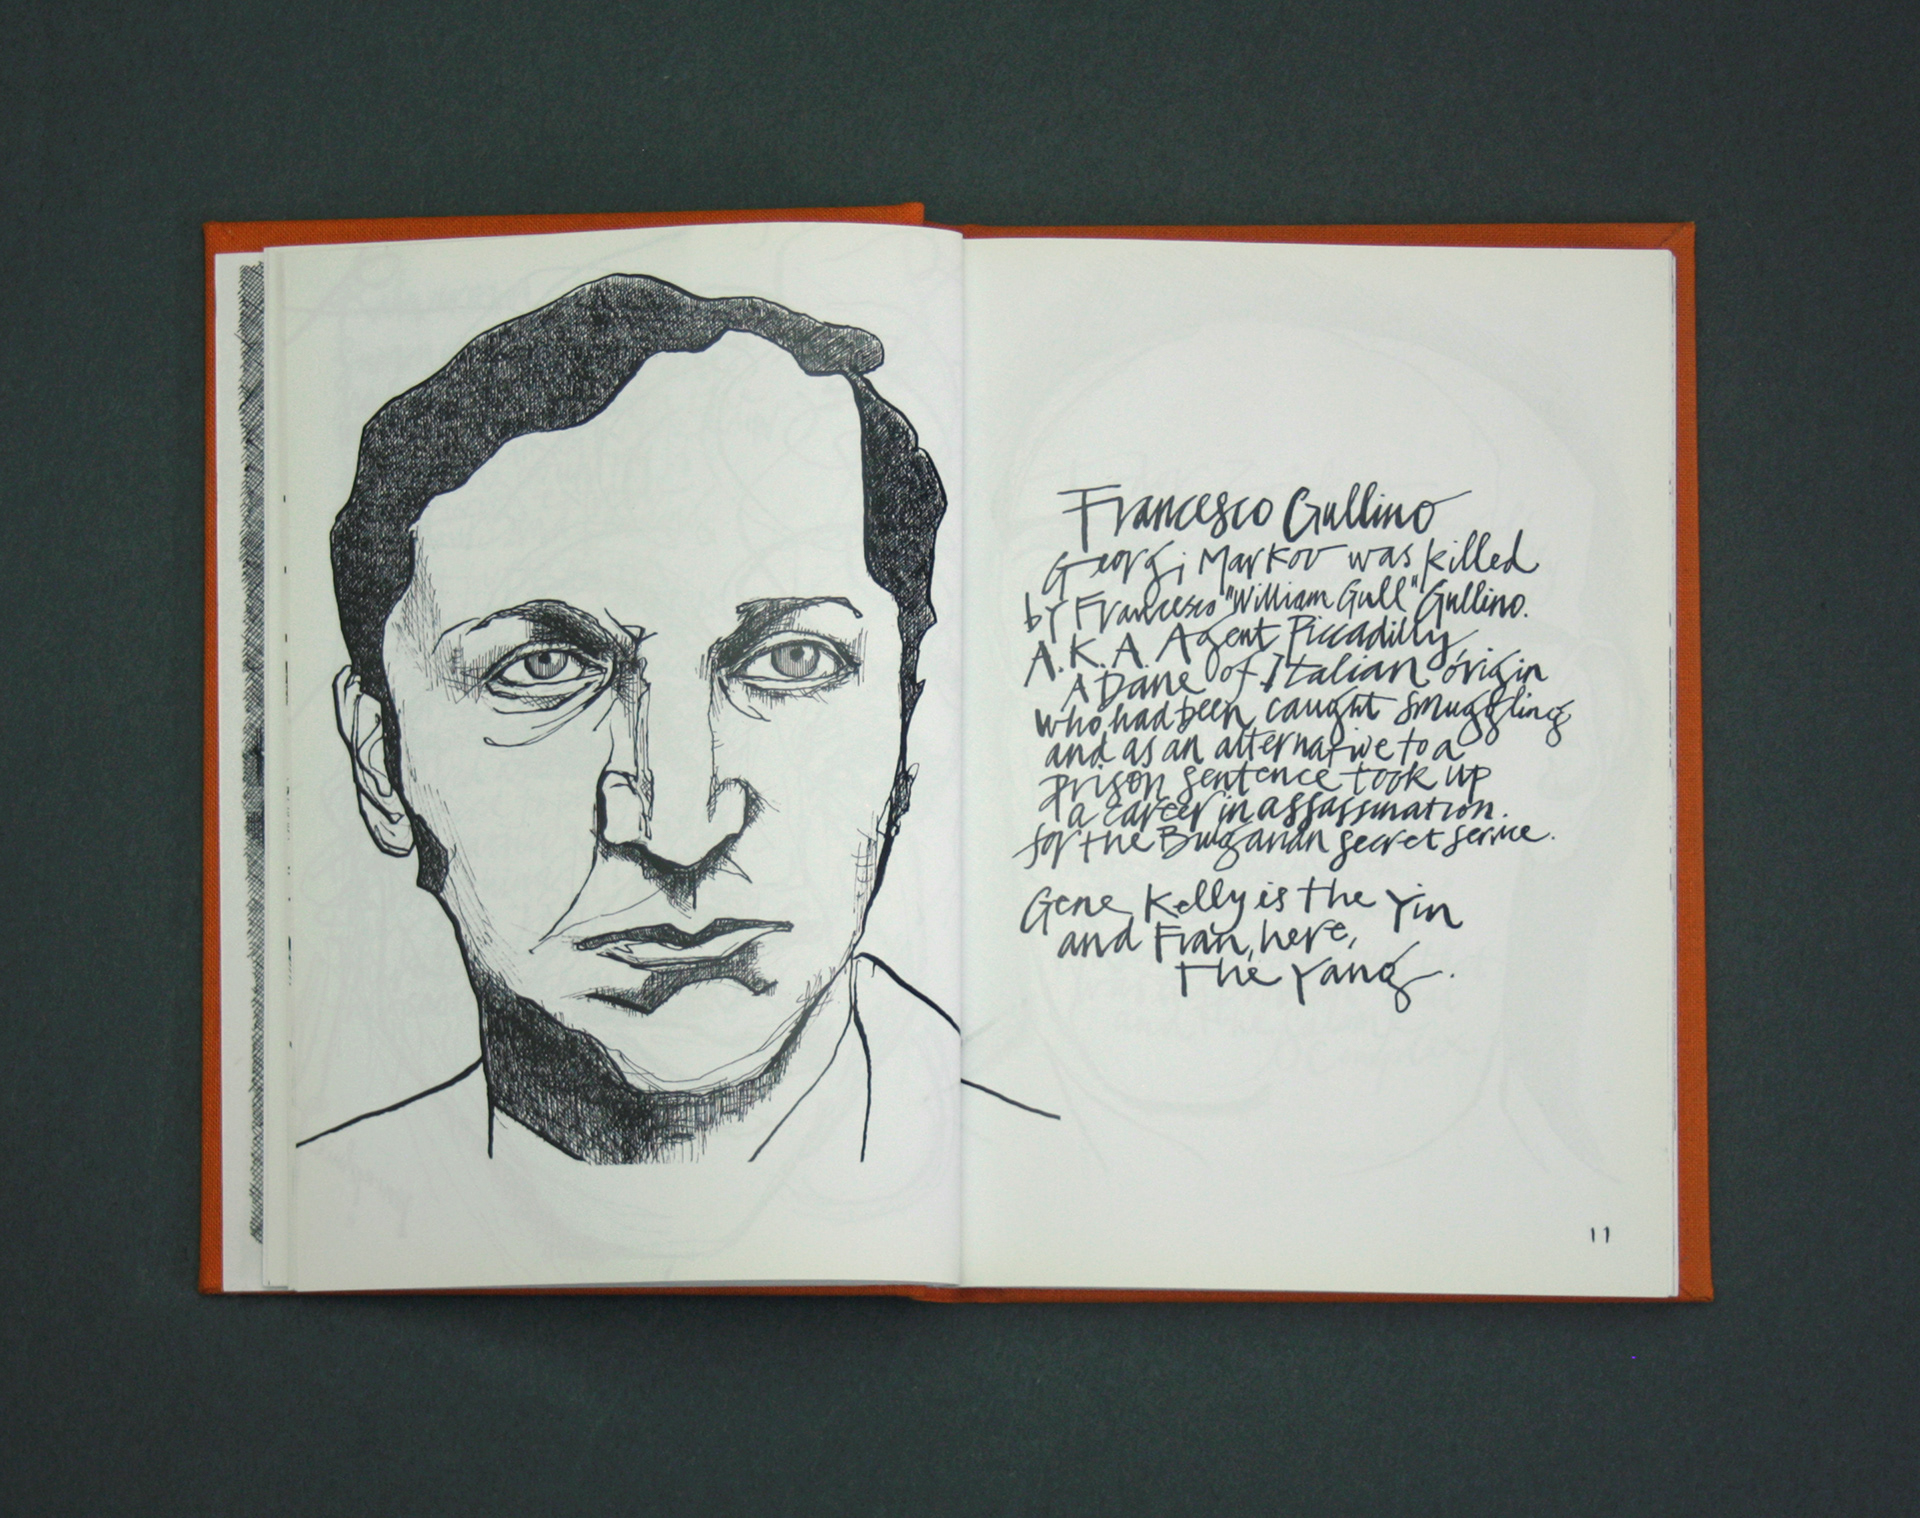 Francesco Gullino
Georgi Markov was killed
by Francesco "William Gull" Gullino.
A.K.A. Agent Piccadilly,
A Dane of Italian origin
who had been caught smuggling
and as an alternative to a
prison sentence took up
a career in assassination.
for the Bulgarian secret service.
Gene Kelly is the Yin
and Fran, here,
the Yang.
11